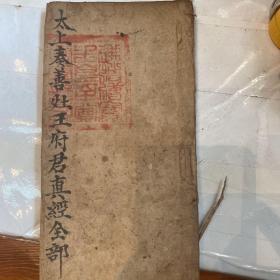 太上奏善灶王府君真經全部